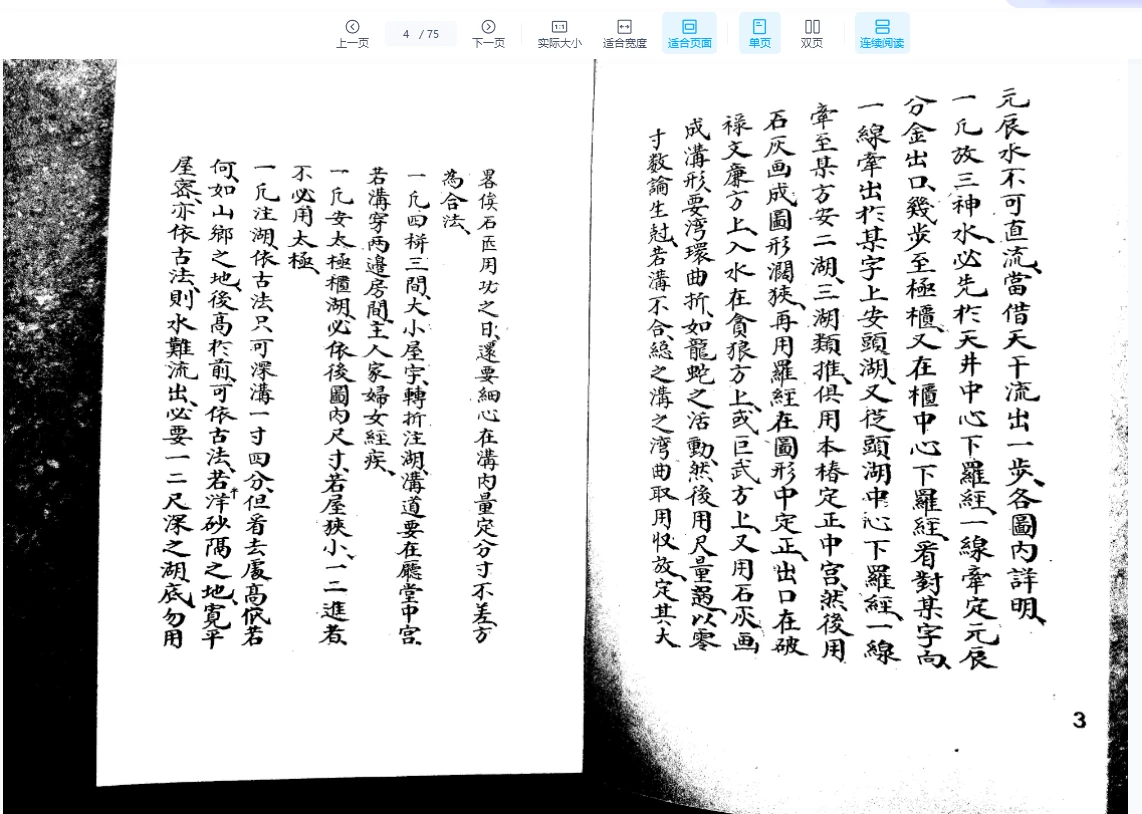 上一页
4 / 75
下一页
1:1
实际大小
适合宽度
适合页面
单页
双页
连续阅读
元辰水不可直流、當借天干流出一步、各圖内詳明、
一凡放三神水、必先扵天井中心下羅經、一線牽定元辰
分金出口、幾步至極櫃、又在櫃中心下羅經、看對某字向、
一線牽出扵某字上安頭湖、又從頭湖中心下羅經、一線
牽至某方安二湖、三湖類推、俱用本椿定正中宮、然後用
石灰画成圖形濶狹、再用羅經在圖形中定正、出口在破
祿文廉方上、入水在貪狼方上、或巨武方上、又用石灰画
成溝形、要湾環曲折、如龍蛇之活動、然後用尺量過、以零
寸数論生尅、若溝不合、総之溝之湾曲取用収放、定其大
畧俟石匠用功之日、還要細心在溝内量定分寸不差、方
為合法、
一凡四拼三間、大小屋宇、轉折注湖、溝道要在廳堂中宮、
若溝穿两邊房間、主人家婦女經疾、
一凡安太極櫃湖、必依後圖内尺寸、若屋狹小、一二進者、
不必用太極、
一凡注湖、依古法只可深溝一寸四分、但看去處高低若
何、如山鄉之地、後高扵前、可依古法、若洋砂隔之地、寬平
屋密、亦依古法、則水難流出、必要一二尺深之湖底、勿用
3